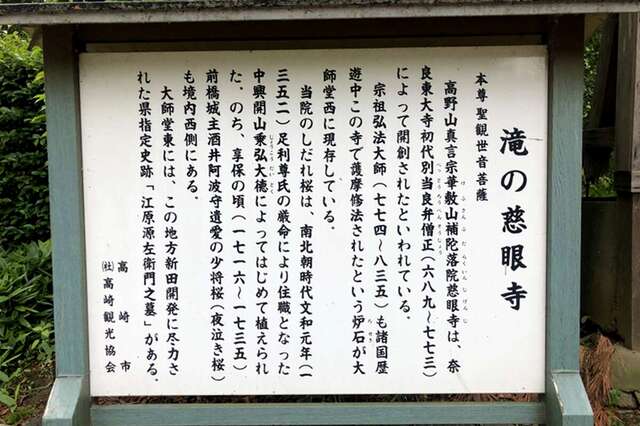 滝の慈眼寺
本尊聖観世音菩薩
高野山真言宗華敷山補陀落院慈眼寺は、奈
良東大寺初代別当良弁僧正（六八九〜七七三）
によって開創されたといわれている。
宗祖弘法大師（七七四〜八三五）も諸国歴
遊中この寺で護摩修法されたという炉石が大
師堂西に現存している。
当院のしだれ桜は、南北朝時代文和元年（一
三五二）足利尊氏の厳命により住職となった
中興開山乗弘大徳によってはじめて植えられ
た。のち、享保の頃（一七一六〜一七三五）
前橋城主酒井阿波守遺愛の少将桜（夜泣き桜）
も境内西側にある。
大師堂東には、この地方新田開発に尽力さ
れた県指定史跡「江原源左衛門之墓」がある。
高崎市
㈳高崎観光協会